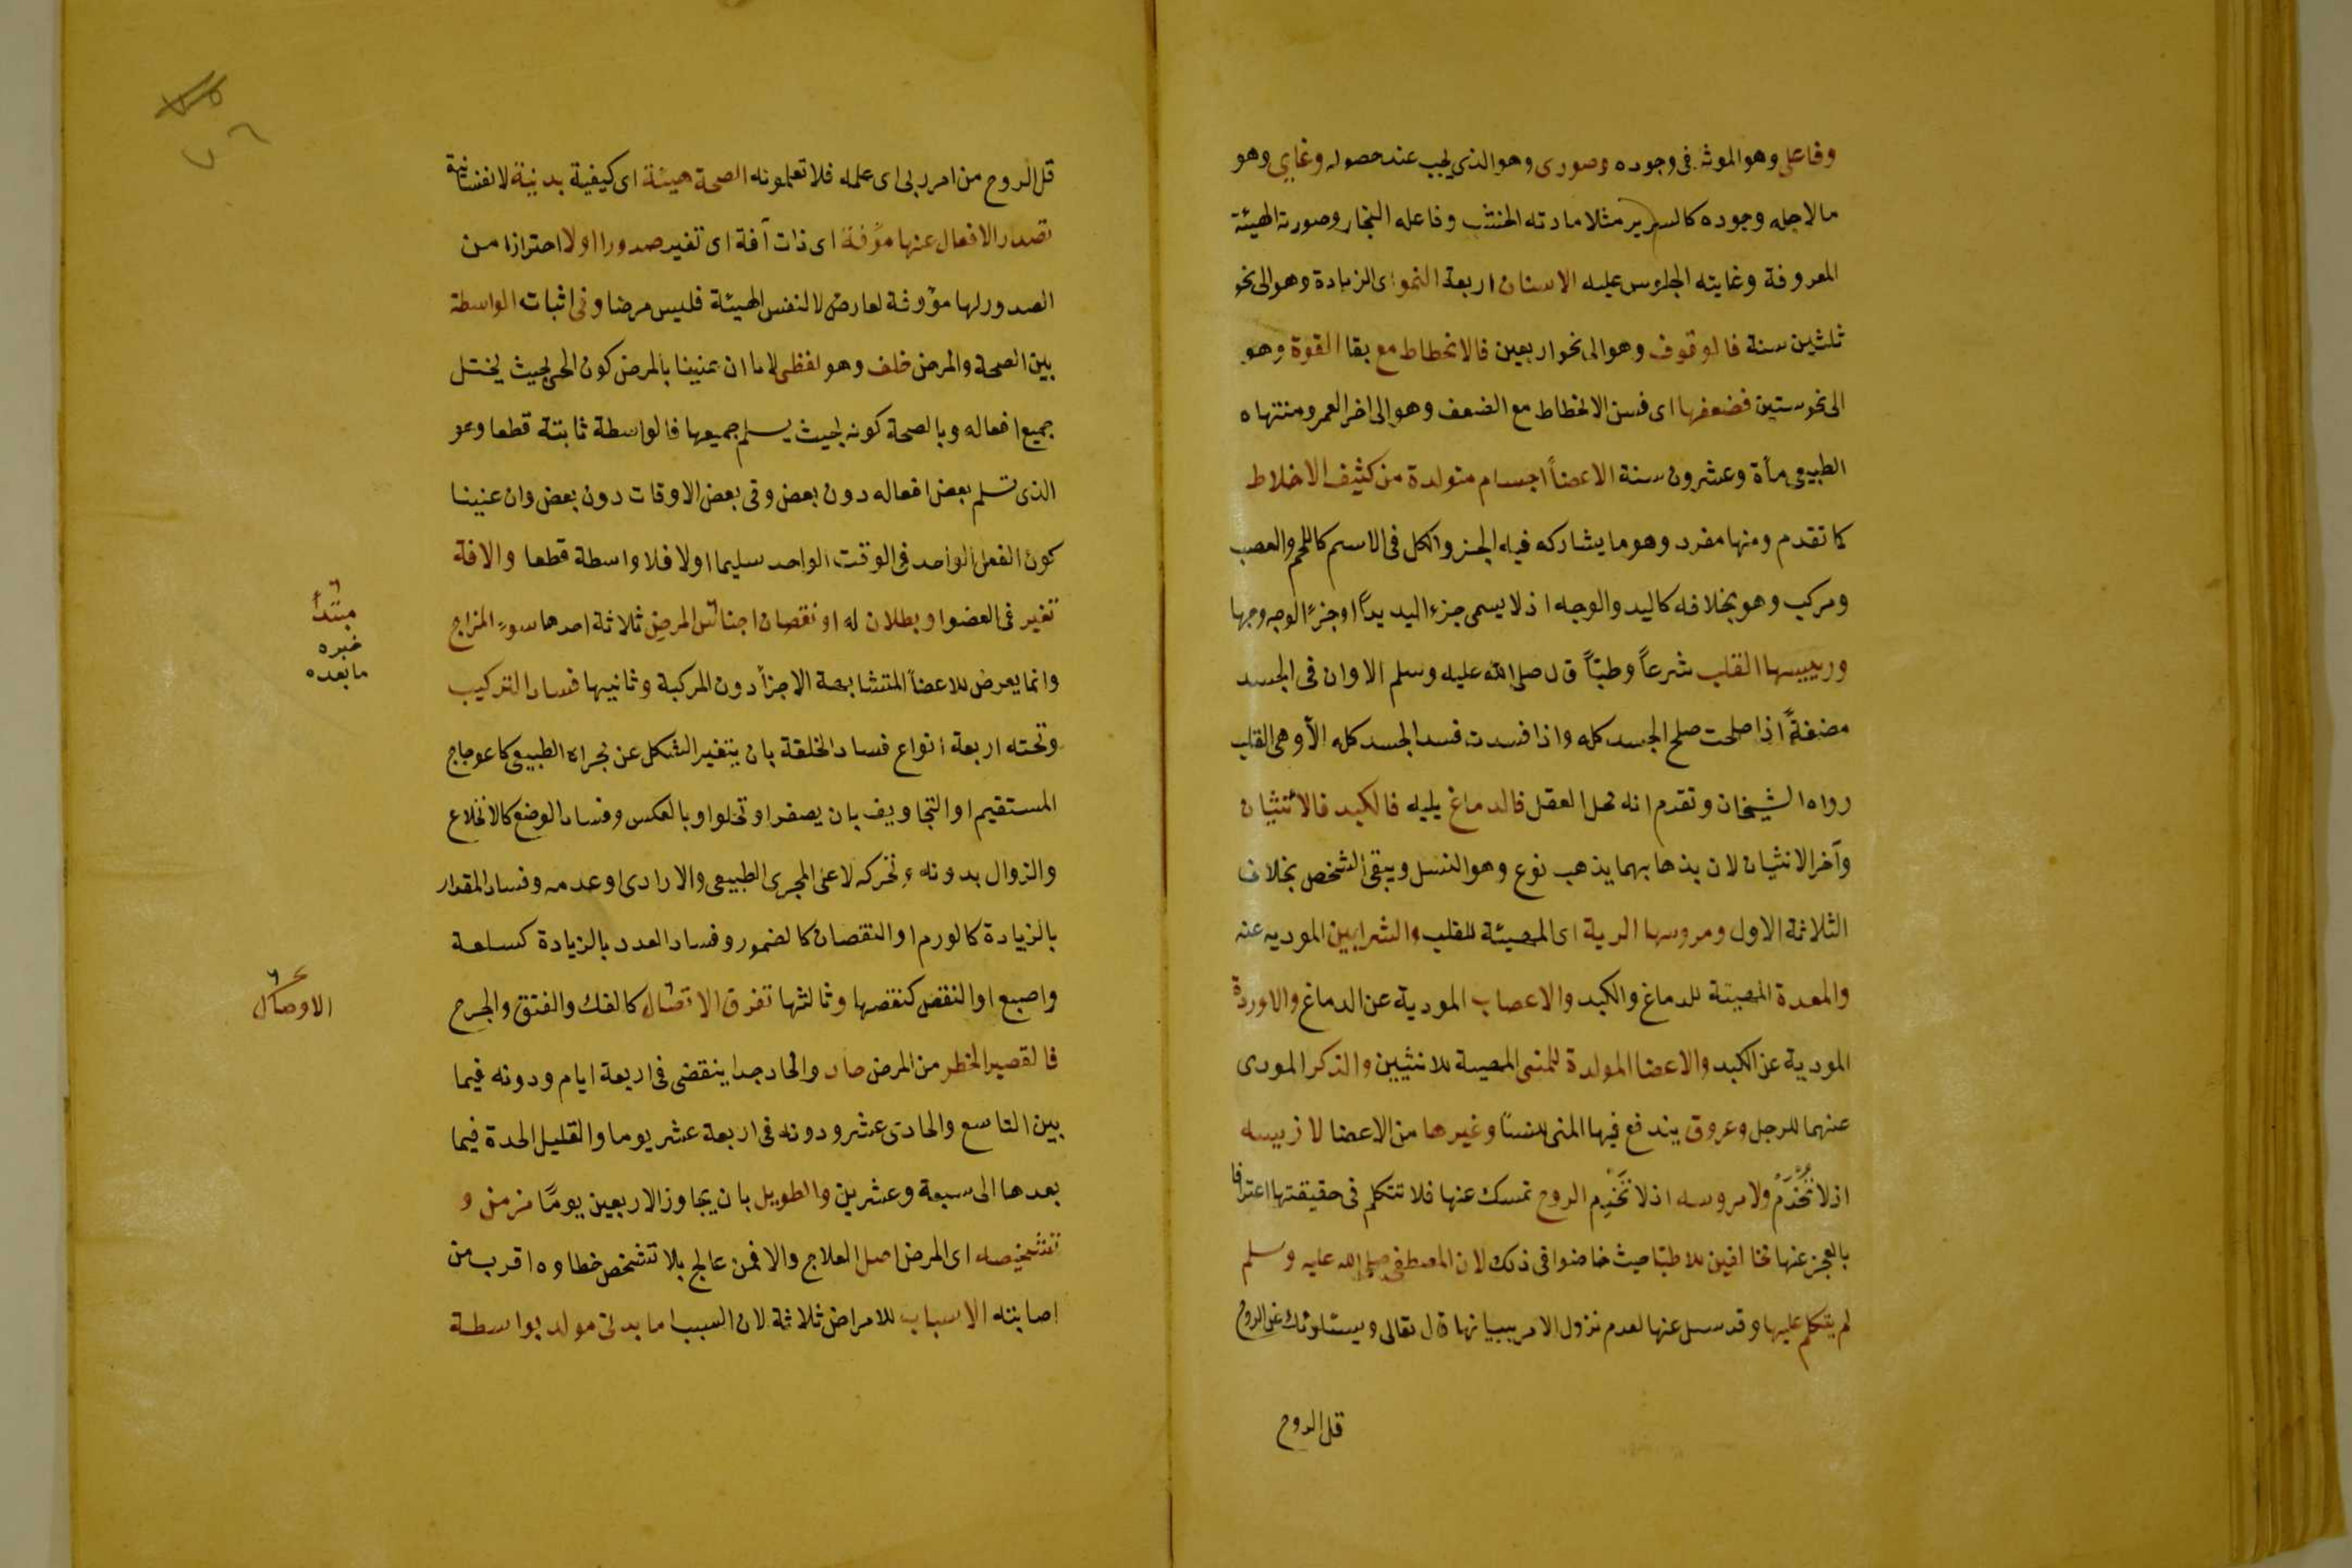 وفاعلى وهو الموثر فى وجوده وصورى وهو الذى يجب عند حصوله وغايى وهو
مالاجله وجوده كالسرير مثلا مادته الخشب وفاعله النجار وصورته الهيئة
المعروفة وغايته الجلوس عليه الاسنان اربعة النمو اى الزيادة وهو الى نحو
ثلثين سنة فالوقوف وهو الى نحو اربعين فالانحطاط مع بقا القوة وهو
الى نحو ستين فضعفها اى فسن الانحطاط مع الضعف وهو الى اخر العمر ومنتهاه
الطبيعى مأة وعشرون سنة الاعضاً اجسام متولدة من كثيف الاخلاط
كما تقدم ومنها مفرد وهو ما يشاركه فيه الجزو الكل فى الاسم كاللحم والعصب
ومركب وهو بخلافه كاليد والوجه اذ لا يسمى جزء اليد يداً او جزءً الوجه وجها
وريييسها القلب شرعاً وطبّاً قال صلى الله عليه وسلم الا وان فى الجسد
مضغةً اذا صلحت صلح الجسد كله واذا فسدت فسد الجسد كله الآ وهى القلب
رواه الشيخان وتقدم انه محل العقل فالدماغ يليه فالكبد فالأنثيان
وآخر الانثيان لان بذهابهما يذهب نوع وهو النسل ويبقى الشخص بخلاف
الثلاثة الاول ومروسها الرية اى المهيئة للقلب والشرايين الموديه عنه
والمعدة المهيئة للدماغ والكبد والاعصاب المودية عن الدماغ والاوردة
المودية عن الكبد والاعضا المولدة للمنى المهيئة للانثيين والذكر المودى
عنهما للرجل وعروق يندفع فيها المنى للنسآ وغيرها من الاعضا لا رييسه
اذ لا تُخْدَمُ ولا مروسه اذ لا تَخْدِم الروح نمسك عنها فلا نتكلم فى حقيقتها اعترافا
بالعجز عنها مخالفين للاطبّا حيث خاضوا فى ذلك لان المصطفى صلى الله عليه وسلم
لم يتكلم عليها وقد سىل عنها لعدم نزول الامر ببيانها قال تعالى ويسئلونك عن الروح
قل الروح
قل الروح من امر ربى اى علمه فلا تعلمونه الصحة هيئة اى كيفية بدنية لا نفسانية
تصدر الافعال عنها مؤفة اى ذات آفة اى تغير صدورا اولا احترازا من
الصدور لها مؤوفة لعارض لا لنفس الهيئة فليس مرضا وفى اثبات الواسطة
بين الصحة والمرض خلف وهو لفظى لانا ان عنينا بالمرض كون الحى بحيث يختل
جميع افعاله وبالصحة كونه بحيث يسلم جميعها فالواسطة ثابتة قطعا وهو
الذى تسلم بعض افعاله دون بعض وفى بعض الاوقات دون بعض وان عنينا
كون الفعل الواحد فى الوقت الواحد سليما اولا فلا واسطة قطعا والافة
تغير فى العضو او بطلان له او نقصان اجناس المرض ثلاثة احدها سوء المزاج
وانما يعرض للاعضاً المتشابهة الاجزآ دون المركبة وثانيها فساد التركيب
وتحته اربعة انواع فساد الخلقة بان يتغير الشكل عن مجراه الطبيعى كاعوجاج
المستقيم او التجاويف بان يصغر او تخلو او بالعكس وفساد الوضع كالانخلاع
والزوال بدونه وتحركه لا على المجرى الطبيعى والارادى او عدمه وفساد المقدار
بالزيادة كالورم او النقصان كالضمور وفساد العدد بالزيادة كسلعة
واصبع او النقص كنقصها وثالثها تفرق الاتصال كالفك والفتق والجرح
فالقصير الخطر من المرض حاد والحاد جدا ينقضى فى اربعة ايام ودونه فيما
بين التاسع والحادى عشر ودونه فى اربعة عشر يوما والقليل الحدة فيما
بعدها الى سبعة وعشرين والطويل بان يجاوز الاربعين يومًا مزمن و
تشخيصه اى المرض اصل العلاج والا فمن عالج بلا تشخص خطاوه اقرب من
اصابته الاسباب للامراض ثلاثة لان السبب اما بدنى مولد بواسطة
مبتدأ
خبره
ما بعده
الاوصال
٧٦